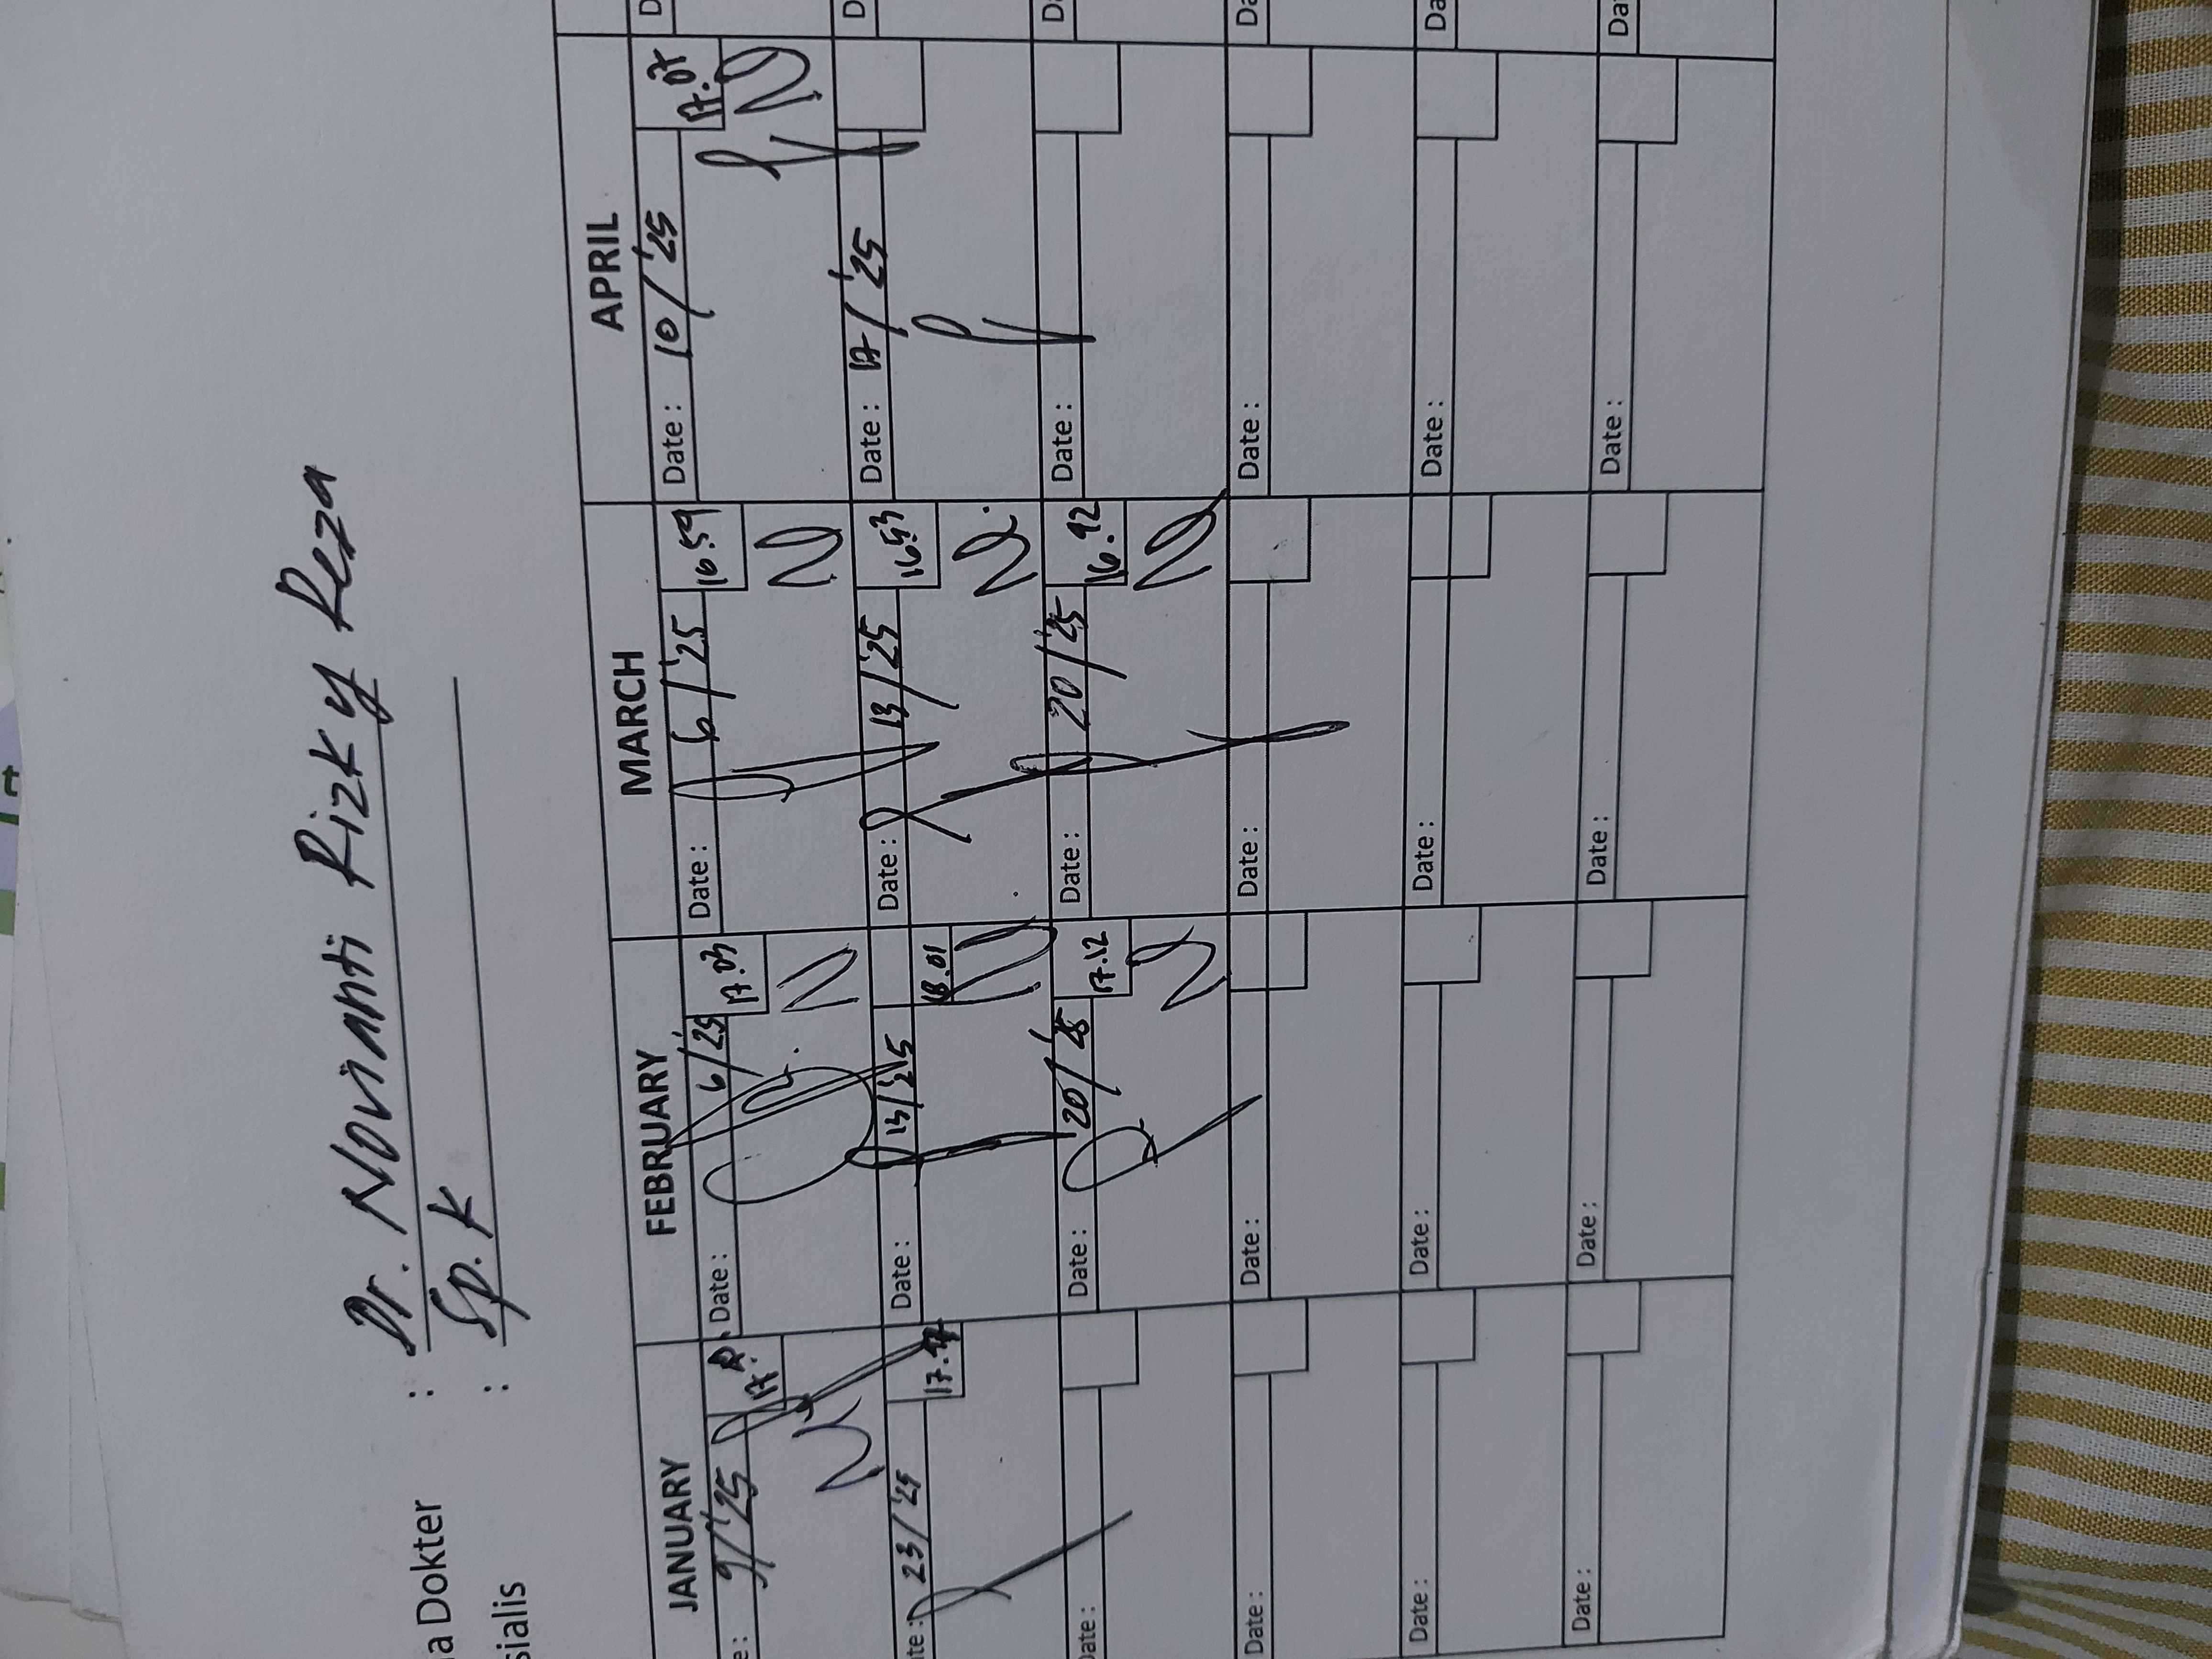 a Dokter : Dr. Novirianti Rizky Reza
sialis : Sp. K
JANUARY FEBRUARY MARCH APRIL
e : 9/'25 Date : 6/'25 17.03 Date : 6/'25 16.59 Date : 10/'25 17.07 D
te : 23/'25 Date : 13/'25 18.01 Date : 13/'25 16.53 Date : 17/'25 D
Date : Date : 20/'25 17.12 Date : 20/'25 16.42 Date : Da
Date : Date : Date : Date : Da
Date : Date : Date : Date : Da
Date : Date : Date : Date : Da